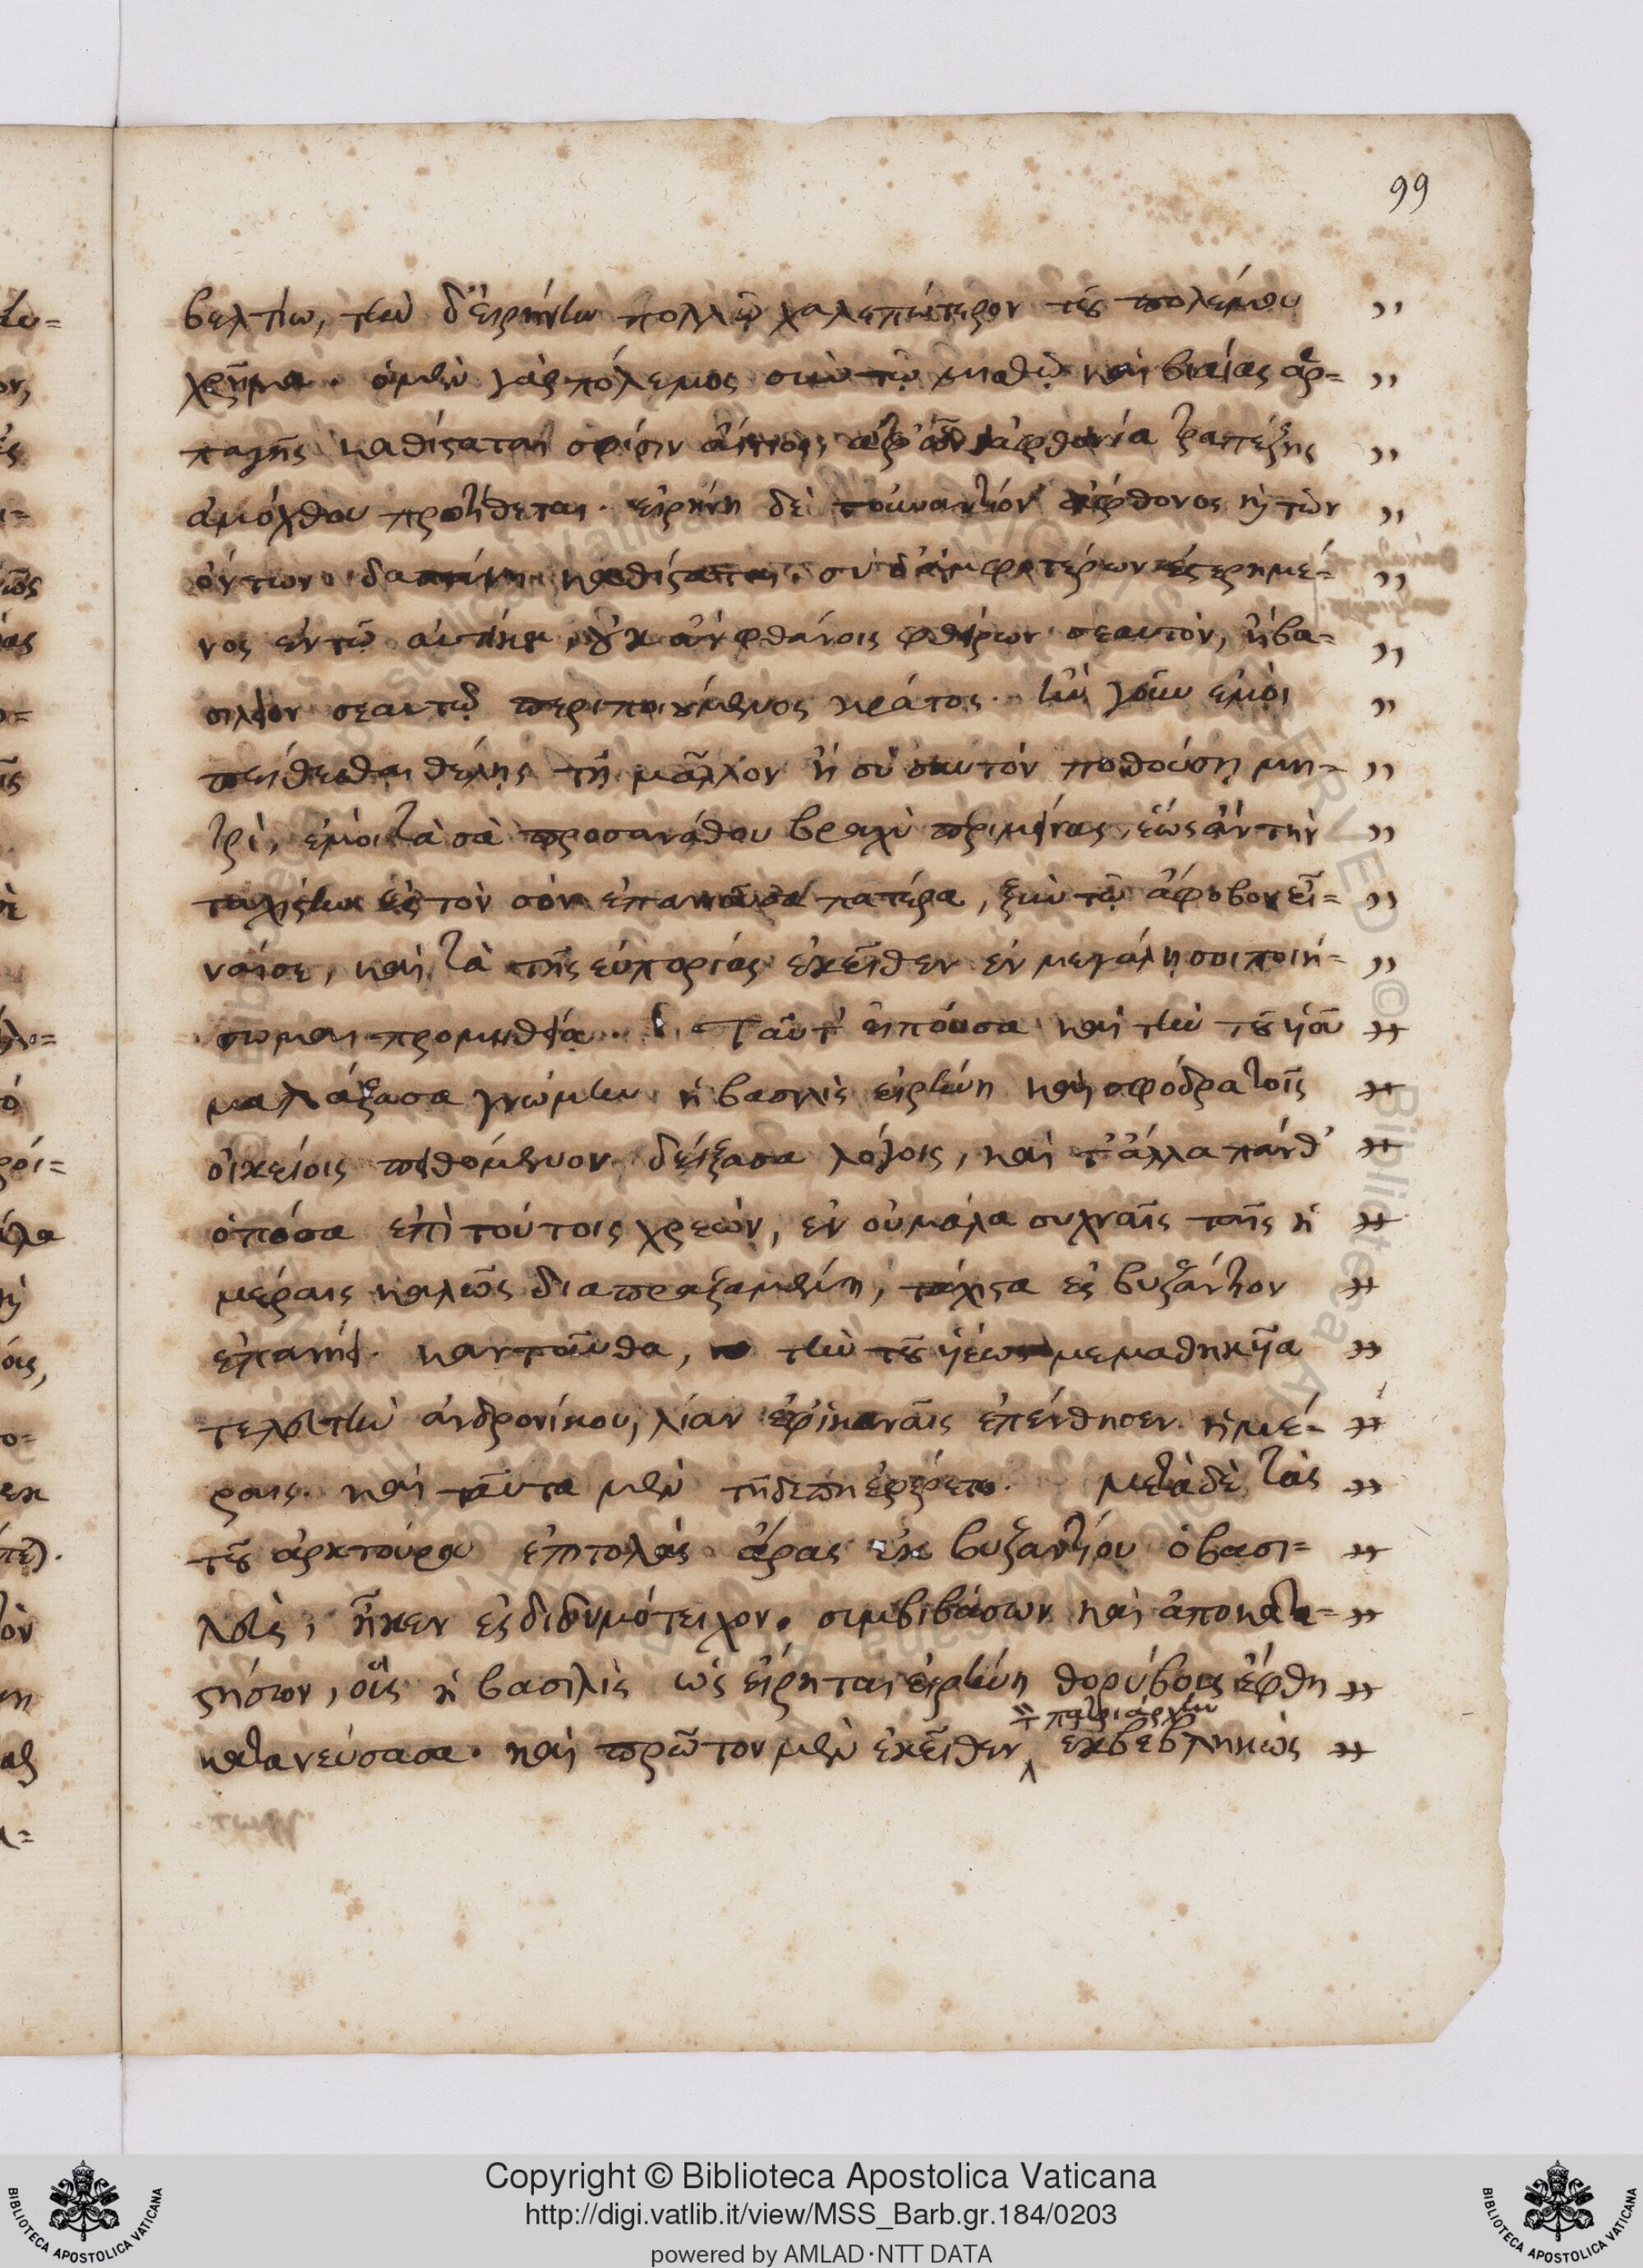 99
βελτίω, τὴν δ' εἰρήνην πολλῷ χαλεπώτερον τοῦ πολέμου ,,
χρῆμα. ὁ μὲν γὰρ πόλεμος σὺν τῷ μισθῷ καὶ βιαίας ἁρ= ,,
παγῆς καθίσταται σφίσιν αἴτιος, ἀφ' ὧν ἀφθονία τραπέζης ,,
ἀμόχθου προτίθεται. εἰρήνη δὲ τοὐναντίον ἀφθόνος κ τῶν ,,
ὄντων δαπάνη καθίσταται. σὺ δ' ἀμφοτέρων ἐστερημέ= ,,
νος ἐν τῷ αὐτίκα, οὐκ ἂν φθάνοις φθείρων σεαυτὸν, ἢ βα= ,,
σίλειον σεαυτῷ περιποιούμενος κράτος. ἢν γοῦν ἐμοὶ ,,
πείθεσθαι θέλῃς τῇ μᾶλλον ἢ σὺ σαυτόν ποθούσῃ μη= ,,
τρὶ, ἐμοὶ τὰ σὰ προσανάθου βραχὺ περιμείνας, ἕως ἂν τὴν ,,
ταχίστην ἐς τὸν σὸν ἐπανιοῦσα πατέρα, ξὺν τῷ ἄφοβον εἶ= ,,
ναί σε, καὶ τὰ τῆς εὐπορίας ἐκεῖθεν ἐν μεγάλῃ σοι ποιή= ,,
σωμαι προμηθείᾳ. Ταῦτ' εἰποῦσα καὶ τὴν τοῦ υἱοῦ
μαλάξασα γνώμην ἡ βασιλὶς εἰρήνη καὶ σφόδρα τοῖς
οἰκείοις πειθόμενον δείξασα λόγοις, καὶ τ' ἄλλα πάνθ'
ὁπόσα ἐπὶ τούτοις χρεὼν, ἐν οὐ μάλα συχναῖς ταῖς ἡ
μέραις καλῶς διαπραξαμένη, τάχιστα ἐς βυζάντιον
ἐπανῄει. κανταῦθα, τὴν τοῦ υἱέως μεμαθηκυῖα
τελευτὴν ἀνδρονίκου, λίαν ἐφ' ἱκαναῖς ἐπένθησεν ἡμέ=
ραις. καὶ ταῦτα μὲν τῇδέ πῃ ἐφέρετο. μετὰ δὲ τὰς
τοῦ ἀρκτούρου ἐπιτολὰς ἄρας ἐκ βυζαντίου ὁ βασι=
λεὺς, ἧκεν ἐς διδυμότειχον. συμβιβάσων καὶ ἀποκατα=
στήσων, οἷς ἡ βασιλὶς ὡς εἴρηται εἰρήνη θορύβοις ἔφθη
πατριάρχην
κατανεύσασα. καὶ πρῶτον μὲν ἐκεῖθεν ἐκβεβληκὼς
Copyright © Biblioteca Apostolica Vaticana
http://digi.vatlib.it/view/MSS_Barb.gr.184/0203
powered by AMLAD·NTT DATA
BIBLIOTECA APOSTOLICA VATICANA
BIBLIOTECA APOSTOLICA VATICANA